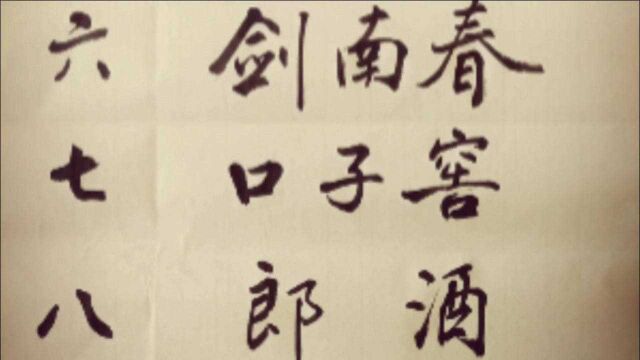 六 剑南春
七 口子窖
八 郎 酒